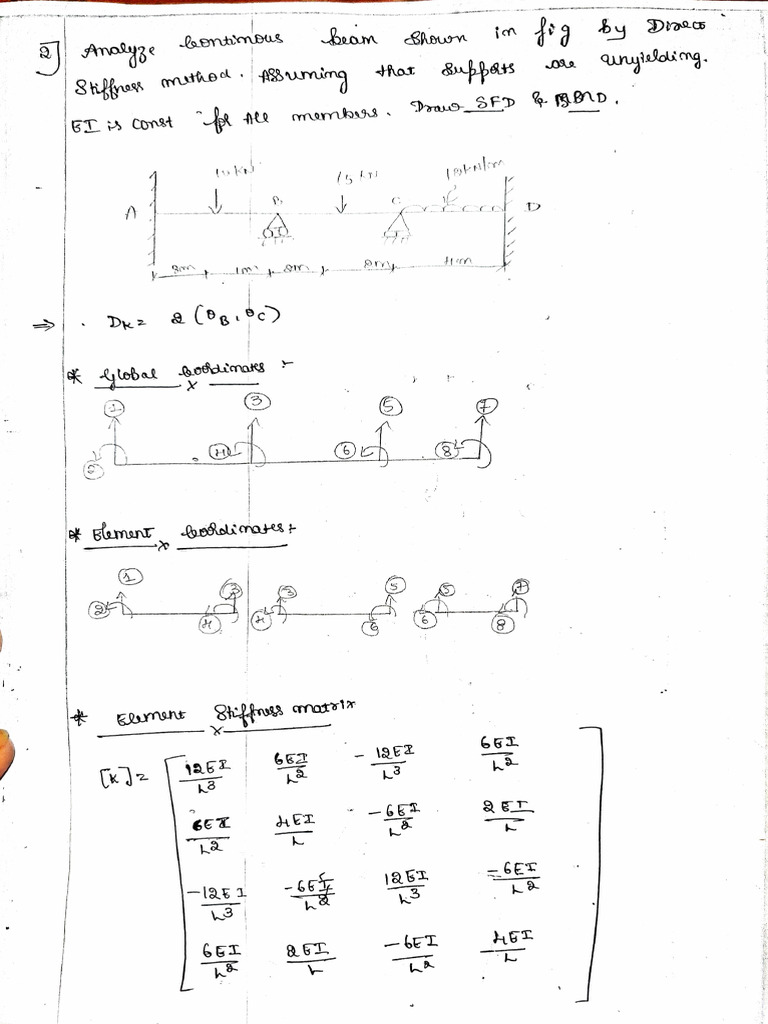 2] Analyze Continous beam shown in fig by Direct
Stiffness method. Assuming that supports are unyielding.
EI is const for All members. Draw SFD & BMD.
10 kN
15 kN
A
B
C
D
2m
1m
2m
2m
4m
⇒ . Dk = 2 (θB, θC)
* Global Coordinates :-
1
3
5
7
2
4
6
8
* Element Coordinates :-
1
3
3
5
5
7
2
4
4
6
6
8
* Element Stiffness matrix
[K] =
12EI/L3 6EI/L2 -12EI/L3 6EI/L2
6EI/L2 4EI/L -6EI/L2 2EI/L
-12EI/L3 -6EI/L2 12EI/L3 -6EI/L2
6EI/L2 2EI/L -6EI/L2 4EI/L